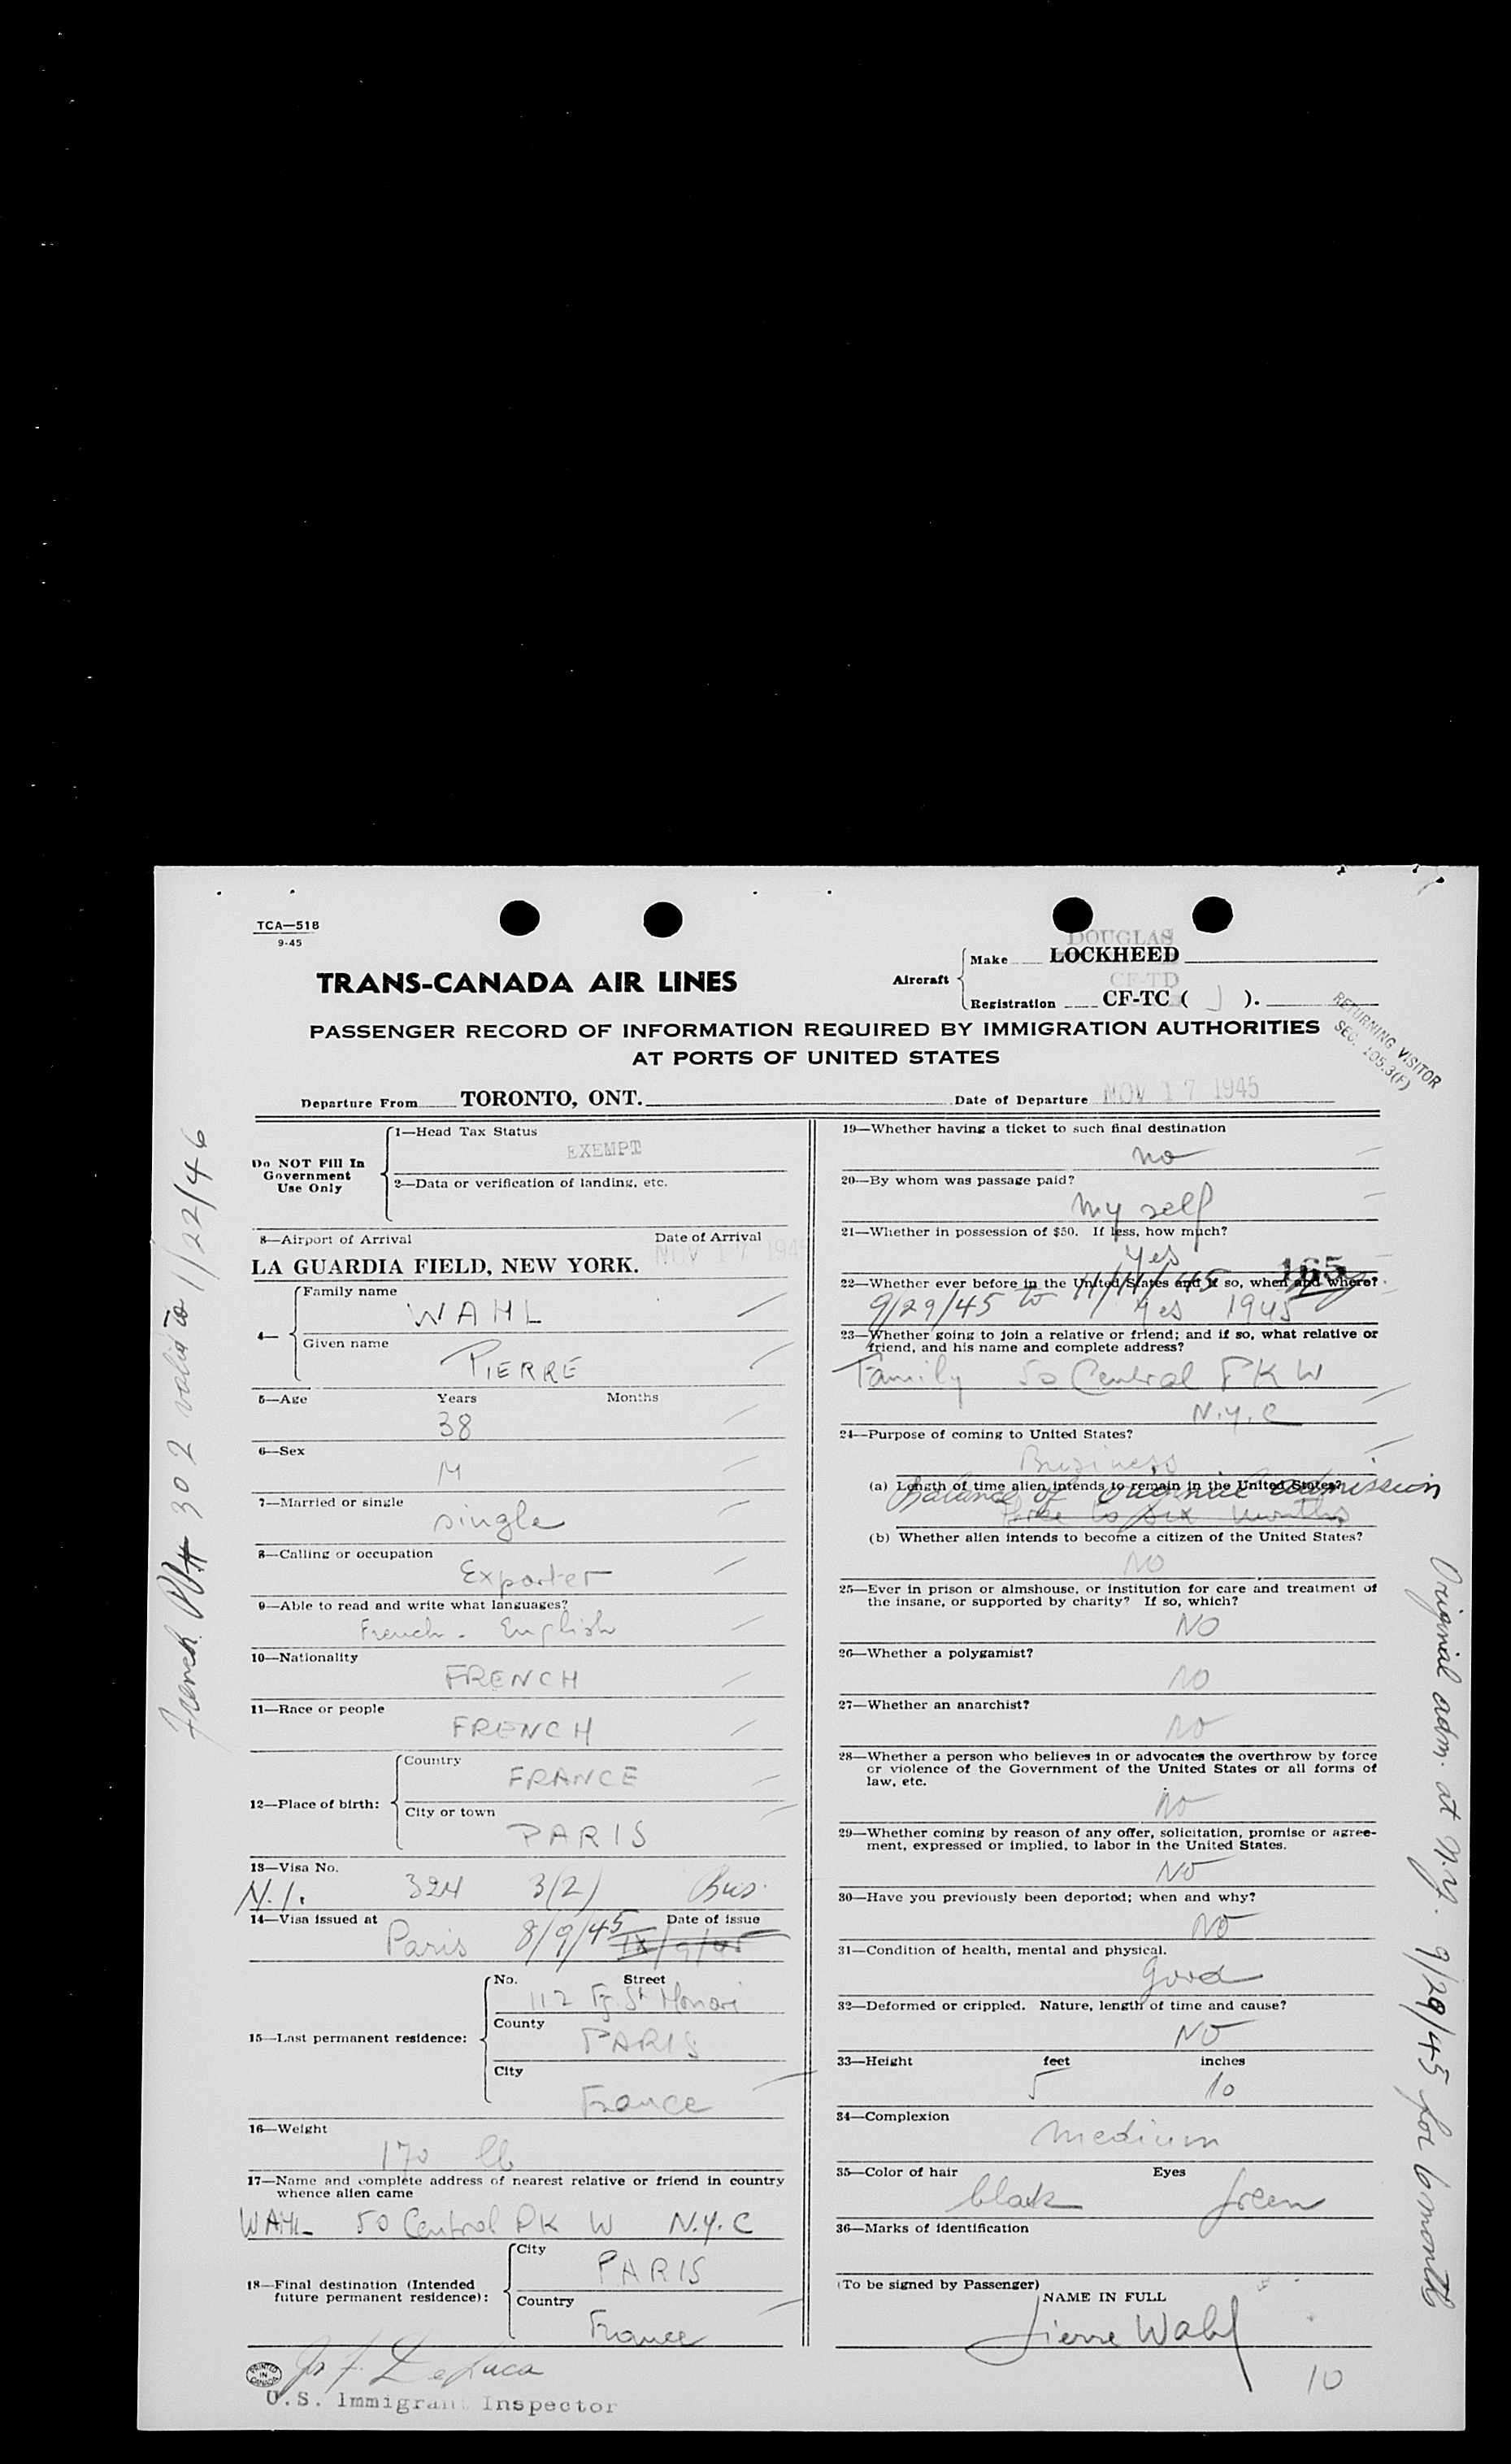 TCA—518
9-45
TRANS-CANADA AIR LINES
Aircraft
DOUGLAS
Make LOCKHEED
CF-TD
Registration CF-TC ( ).
RETURNING VISITOR
SEC. 105.3(F)
PASSENGER RECORD OF INFORMATION REQUIRED BY IMMIGRATION AUTHORITIES
AT PORTS OF UNITED STATES
Departure From TORONTO, ONT. Date of Departure NOV 17 1945
Do NOT Fill In
Government
Use Only
1—Head Tax Status
EXEMPT
2—Data or verification of landing, etc.
3—Airport of Arrival Date of Arrival
LA GUARDIA FIELD, NEW YORK. NOV 17 1945
4—
Family name
WAHL
Given name
PIERRE
5—Age Years Months
38
6—Sex
M
7—Married or single
single
8—Calling or occupation
Exporter
9—Able to read and write what languages?
French - English
10—Nationality
FRENCH
11—Race or people
FRENCH
12—Place of birth:
Country
FRANCE
City or town
PARIS
13—Visa No.
N.I. 324 3(2) Bus.
14—Visa issued at Date of issue
Paris 8/9/45
15—Last permanent residence:
No. Street
112 Fg. St Honoré
County
PARIS
City
France
16—Weight
170 lb
17—Name and complete address of nearest relative or friend in country
whence alien came
WAHL 50 Central PK W N.Y.C
18—Final destination (Intended
future permanent residence):
City
PARIS
Country
France
PRINTED
IN
CANADA
U.S. Immigrant Inspector
19—Whether having a ticket to such final destination
no
20—By whom was passage paid?
my self
21—Whether in possession of $50. If less, how much?
yes
165
22—Whether ever before in the United States and if so, when and where?
9/29/45 to 11/11/45 yes 1945
23—Whether going to join a relative or friend; and if so, what relative or
friend, and his name and complete address?
Family 50 Central PK W
N.Y.C
24—Purpose of coming to United States?
Business
(a) Length of time alien intends to remain in the United States?
Balance of original admission
three to six months
(b) Whether alien intends to become a citizen of the United States?
NO
25—Ever in prison or almshouse, or institution for care and treatment of
the insane, or supported by charity? If so, which?
NO
26—Whether a polygamist?
NO
27—Whether an anarchist?
NO
28—Whether a person who believes in or advocates the overthrow by force
or violence of the Government of the United States or all forms of
law, etc.
No
29—Whether coming by reason of any offer, solicitation, promise or agree-
ment, expressed or implied, to labor in the United States.
NO
30—Have you previously been deported; when and why?
NO
31—Condition of health, mental and physical.
good
32—Deformed or crippled. Nature, length of time and cause?
NO
33—Height feet inches
5 10
34—Complexion
medium
35—Color of hair Eyes
black green
36—Marks of identification
(To be signed by Passenger)
NAME IN FULL
Pierre Wahl
10
French PP# 302 valid to 1/22/46
Original adm. at N.Y. 9/29/45 for 6 months